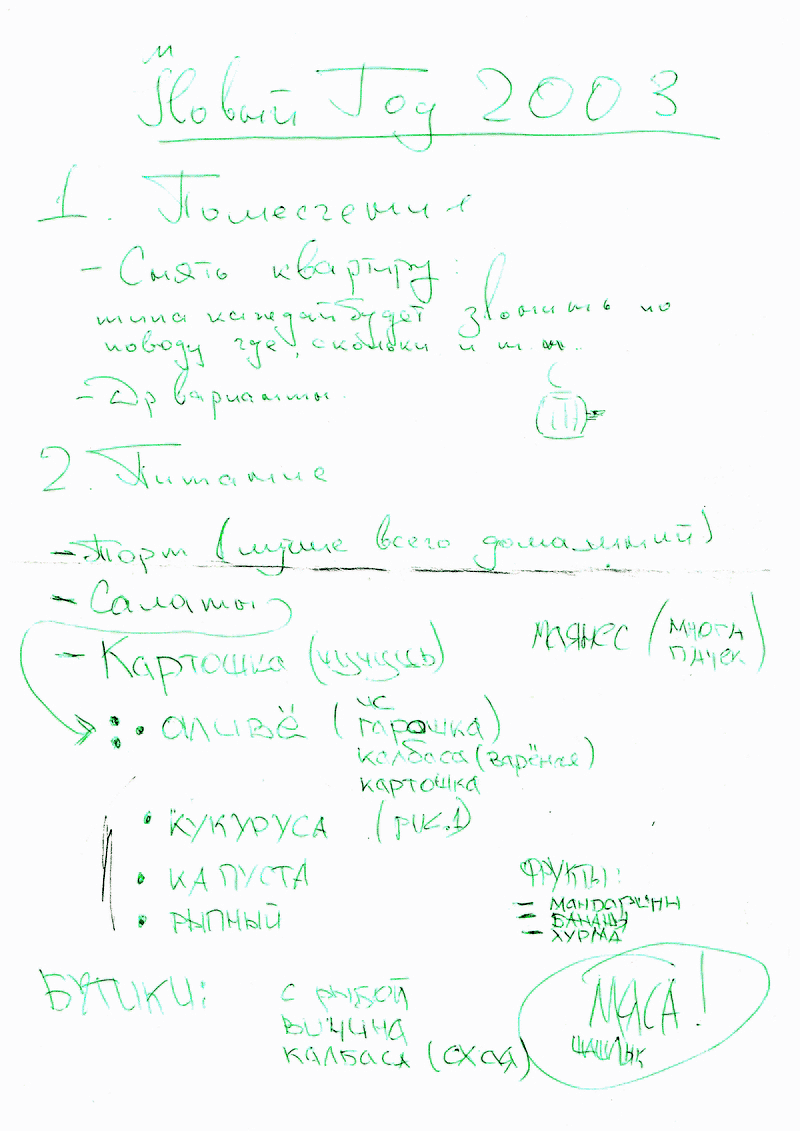 Новый Год 2003
1. Помесчения
- Снять квартиру:
типа каждай будет звонить по
поводу где, скольки и т.п.
- Др варианты.
2. Питание
- Торт (лучше всего домашний)
- Салаты
- Картошка (чучуць)
маянес (многа
пачек)
• оливьё (ис
гарошка)
калбаса (варёная)
картошка
• КУКУРУСА (рис.1)
• КАПУСТА
• РЫПНЫЙ
ФРУКТЫ:
- мандарины
- БАНАНЫ
- ХУРМА
БУТИКИ:
с рыбой
вичина
калбаса (схая)
МЯСА!
шашлык